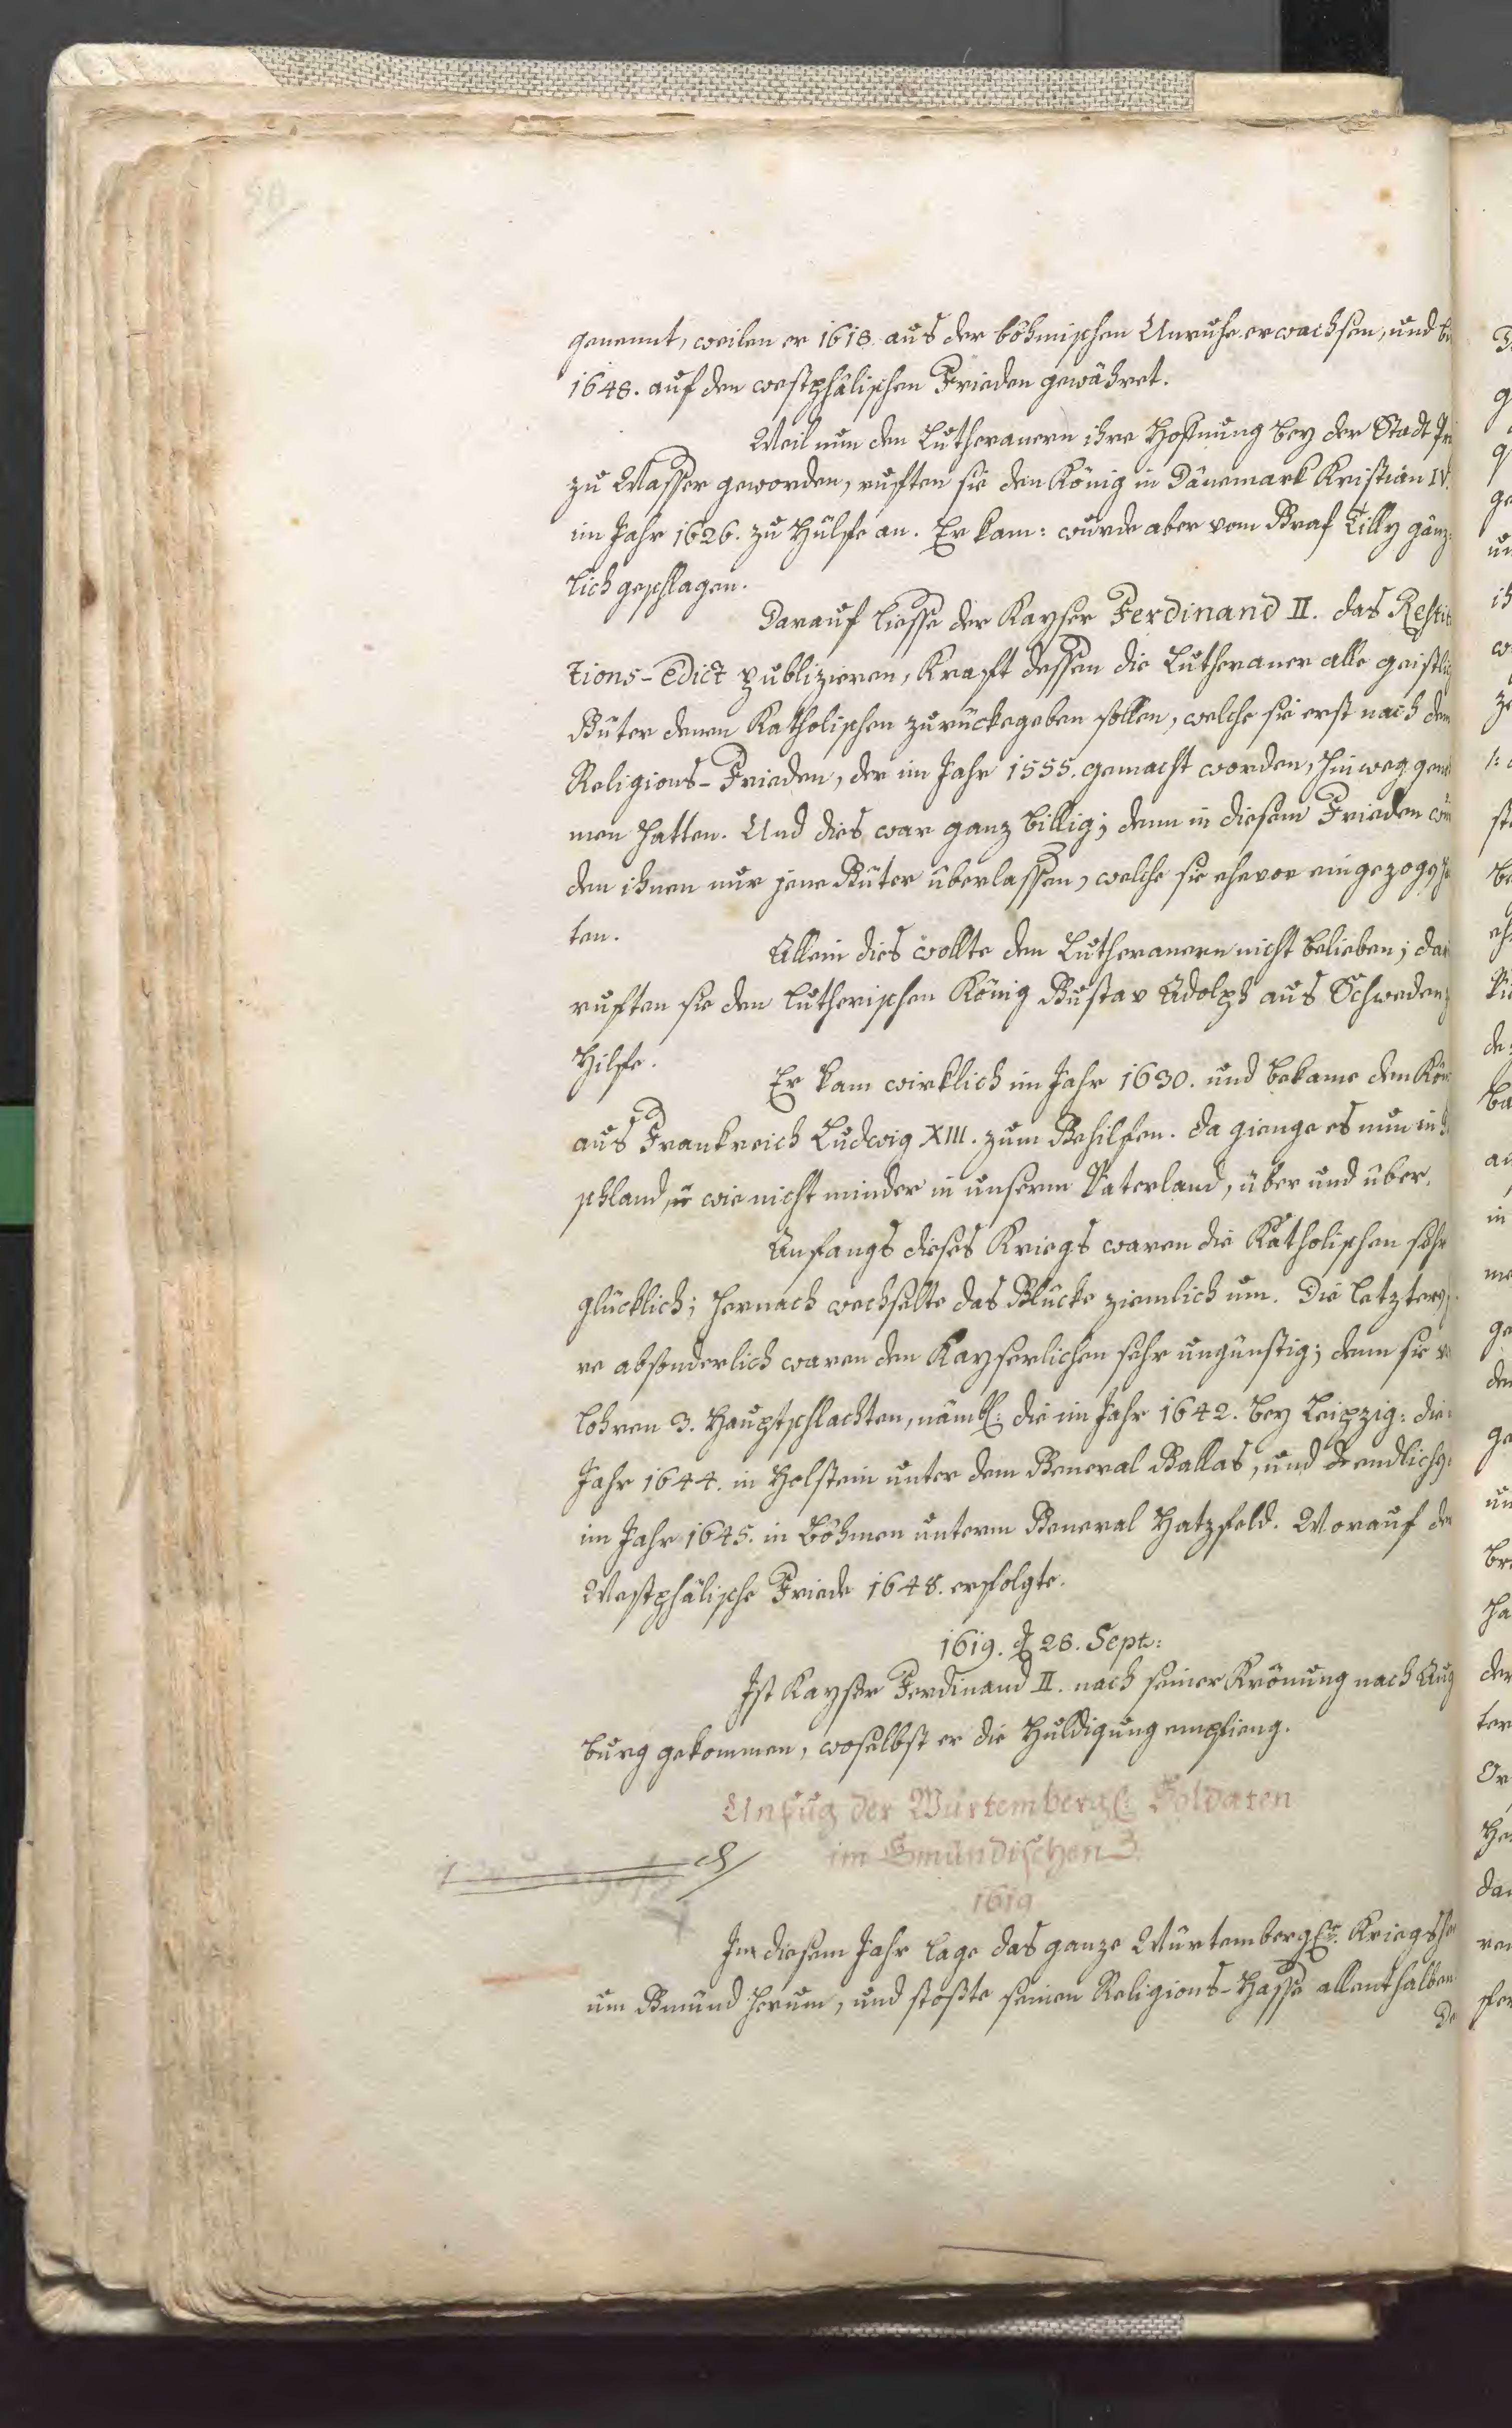 genennt, weilen er 1618. aus der böhmischen Unruhe erwachsen, und
1648. auf den westphälischen Frieden gewähret.
Weil nun den Lutheranern ihre Hoffnung bey der Stadt
zu Wasser geworden, rufften sie den König in Dänemark Kristian IV.
im Jahr 1626. zu Hülfe an. Er kam: wurde aber vom Graf Tilly gänz-
lich geschlagen.
Darauf liesse der Kayser Ferdinand II. das Restit
tions-Edict publizieren, Krafft dessen die Lutheraner alle geistli
Güter denen Katholischen zurückegeben sollen, welche sie erst nach dem
Religions-Frieden, der im Jahr 1555. gemacht worden, hinweg gen
men hatten. Und dies war ganz billig; denn in diesem Frieden wur
den ihnen nur jene Güter überlassen, welche sie ehevor eingezogen
ten.
Allein dies wollte den Lutheranern nicht belieben; dar
rufften sie den Lutherischen König Gustav Adolph aus Schweden
Hilfe.
Er kam wirklich im Jahr 1630. und bekame den Kön
aus Frankreich Ludwig XIII. zum Gehilfen. da gienge es nun in
schland, wie nicht minder in unserm Vaterland, über und über.
Anfangs dieses Kriegs waren die Katholischen sehr
glücklich; hernach wechselte das Glücke ziemlich um. Die letztern
re absonderlich waren den Kayserlichen sehr ungünstig; denn sie
lohren 3. Hauptschlachten, nämbl: die im Jahr 1642. bey Leipzig: die
Jahr 1644. in Holstein unter dem General Gallas, und endlich
im Jahr 1645. in Böhmen unterm General Hatzfeld. Worauf der
Westphälische Friede 1648. erfolgte.
1619. d 28. Sept:
Ist Kayser Ferdinand II. nach seiner Krönung nach Aug
burg gekommen, woselbst er die Huldigung empfieng.
Unfug der Würtembergl: Soldaten
im Gmündischen 3.
1619
In diesem Jahr lage das ganze Würtembergl: Kriegshe
um Gmünd herum, und stoßte seinen Religions-Hasse allenthalben